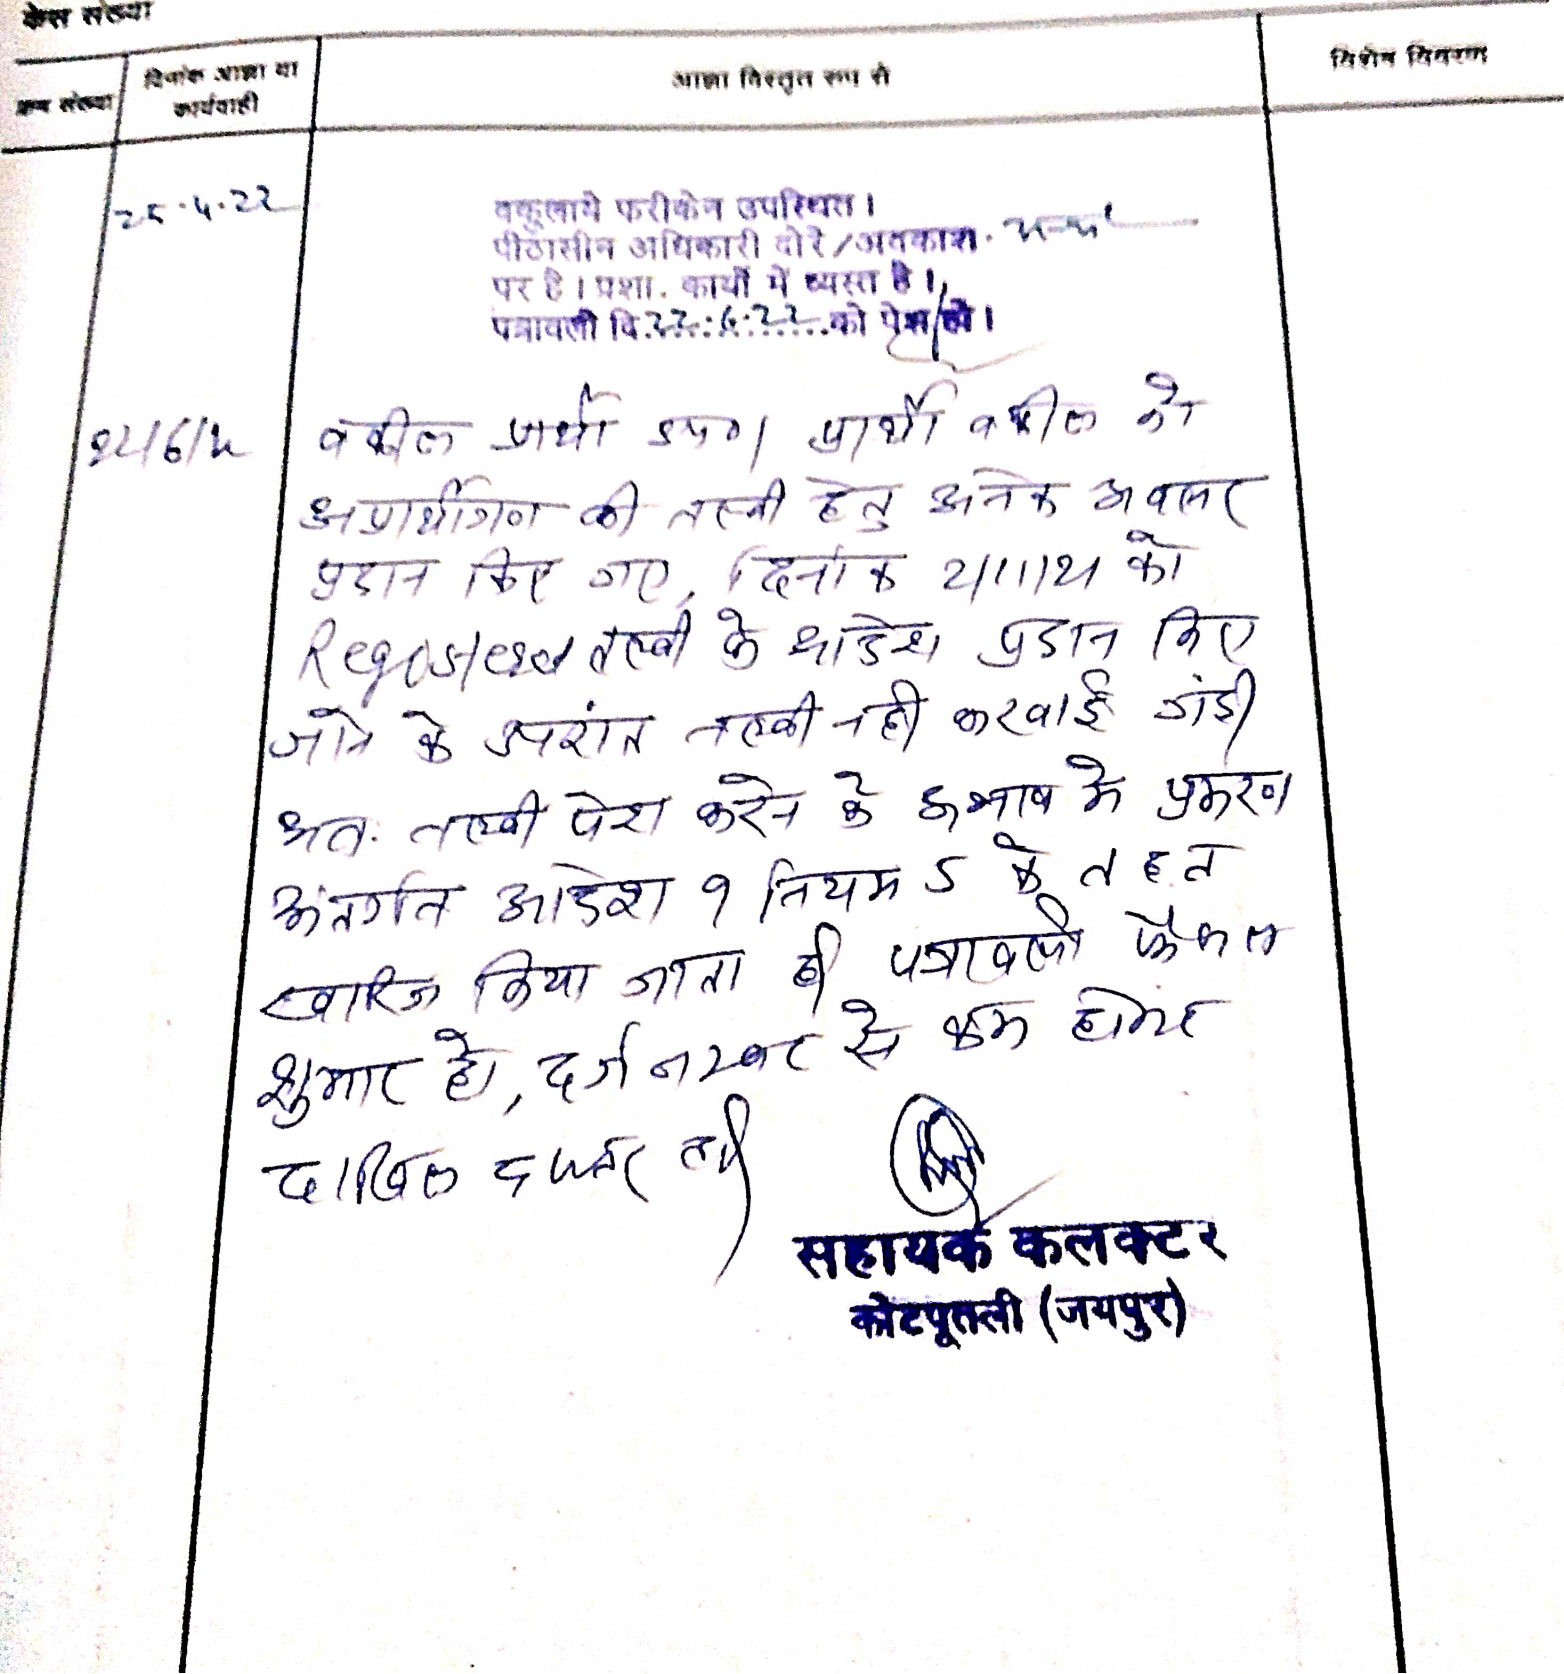 केस संख्या
क्रम संख्या
दिनांक आज्ञा या
कार्यवाही
आज्ञा विस्तृत रूप से
विशेष विवरण
25.4.22
वकूलाये फरीकेन उपस्थित।
पीठासीन अधिकारी दोरे/अवकाश
पर है। प्रशा. कार्यों में व्यस्त है।
पत्रावली दि. 22.6.22 को पेश हो।
वकील प्रार्थी उप०। प्रार्थी वकील को
अप्रार्थीगण की तलबी हेतु अनेक अवसर
प्रदान किए गए, दिनांक 2/11/21 को
Registered तलबी के आदेश प्रदान किए
जाने के उपरांत तलबी नही करवाई गई।
अतः तलबी पेश करने के अभाव मे प्रकरण
अंतर्गत आदेश 9 नियम 5 के तहत
खारिज किया जाता है। पत्रावली फैसल
शुमार हो, दर्ज नम्बर से कम होकर
दाखिल दफ्तर हो।
सहायक कलक्टर
कोटपूतली (जयपुर)